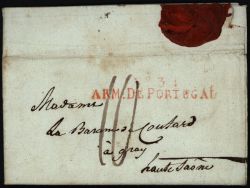 ARM. DE PORTUGAL
Madame
La Baronne de Coutard
à gray
haute Saône